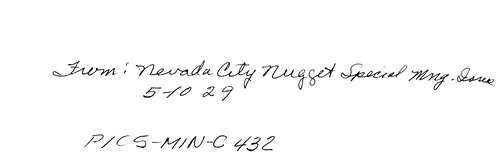 From: Nevada City Nugget Special Mng. Issue
5-10 29
PICS-MIN-C 432